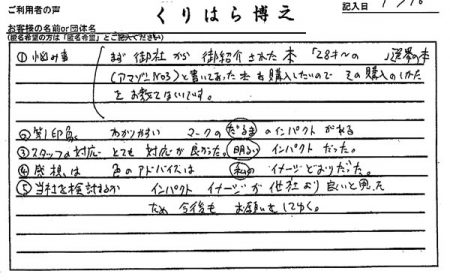 ご利用者の声
お客様の名前or団体名
(匿名希望の方は「匿名希望」とご記入ください)
くりはら博之
記入日
①悩み事 まず御社から御紹介された本「28才〜の 」選挙の本
(アマゾンNo3)と書いてあった本を購入したいので その購入のしかた
をお教えてほしいです。
②第1印象 わかりやすい マークの だるま のインパクトがある
③スタッフの対応 とても対応が良かった。明るい インパクトだった。
④感想は 色のアドバイスは 私の イメージどおりだった。
⑤当社を検討するか インパクト イメージが他社より良いと思った
ため 今後も お願いをしてゆく。